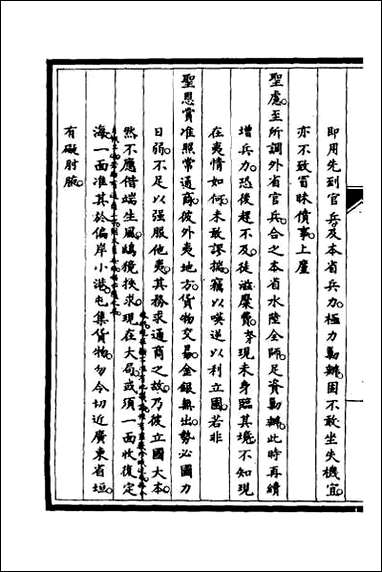 即用先到官兵及本省兵力極力勦辦固不敢坐失機宜
亦不致冒昧僨事上廑
聖慮至所調外省官兵合之本省水陸全師足資勦辦此時再續
增兵力恐後趕不及徒滋糜費等現未身臨其境不知現
在夷情如何未敢謬揣竊以㗎逆以利立國若非
聖恩賞准照常通商彼外夷地方貨物交易金銀無出勢必國力
日弱不足以強服他夷其務求通商之故乃彼立國大本
然不應借端生風鴟獍挾求現在大局或須一面收復定
海一面准其於偏岸小港屯集貨物勿令切近廣東省垣
有礙肘腋